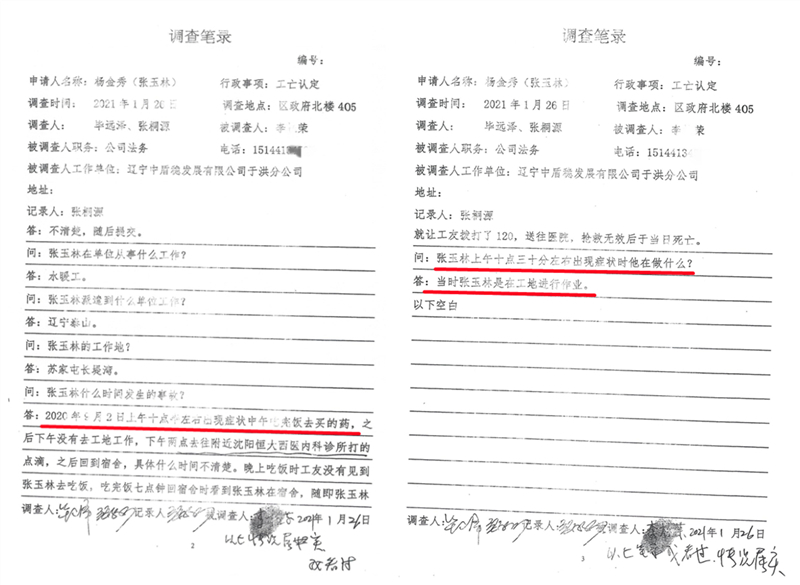 调查笔录
编号：
申请人名称：杨金秀（张玉林） 行政事项：工亡认定
调查时间： 2021年1月26日 调查地点：区政府北楼405
调查人： 毕远泽、张桐源 被调查人：李 荣
被调查人职务：公司法务 电话：1514413
被调查人工作单位：辽宁中盾 发展有限公司于洪分公司
地址：
记录人：张桐源
答：不清楚，随后提交。
问：张玉林在单位从事什么工作？
答：水暖工。
问：张玉林派遣到什么单位工作？
答：辽宁泰山。
问：张玉林的工作地？
答：苏家屯长堤湾。
问：张玉林什么时间发生的事故？
答：2020年9月2日上午十点 左右出现症状中午吃完饭去买的药，之
后下午没有去工地工作，下午两点去往附近沈阳恒大西医内科诊所打的
点滴，之后回到宿舍，具体什么时间不清楚。晚上吃饭时工友没有见到
张玉林去吃饭，吃完饭七点钟回宿舍时看到张玉林在宿舍，随即张玉林
调查人： 记录人 被调查人： 2021年1月26日
以上情况属实
2
调查笔录
编号：
申请人名称：杨金秀（张玉林） 行政事项：工亡认定
调查时间： 2021年1月26日 调查地点：区政府北楼405
调查人： 毕远泽、张桐源 被调查人：李 荣
被调查人职务：公司法务 电话：15144134
被调查人工作单位：辽宁中盾 发展有限公司于洪分公司
地址：
记录人：张桐源
就让工友拨打了120，送往医院，抢救无效后于当日死亡。
问：张玉林上午十点三十分左右出现症状时他在做什么？
答：当时张玉林是在工地进行作业。
以下空白
调查人： 记录人 被调查人： 2021年1月26日
情况属实